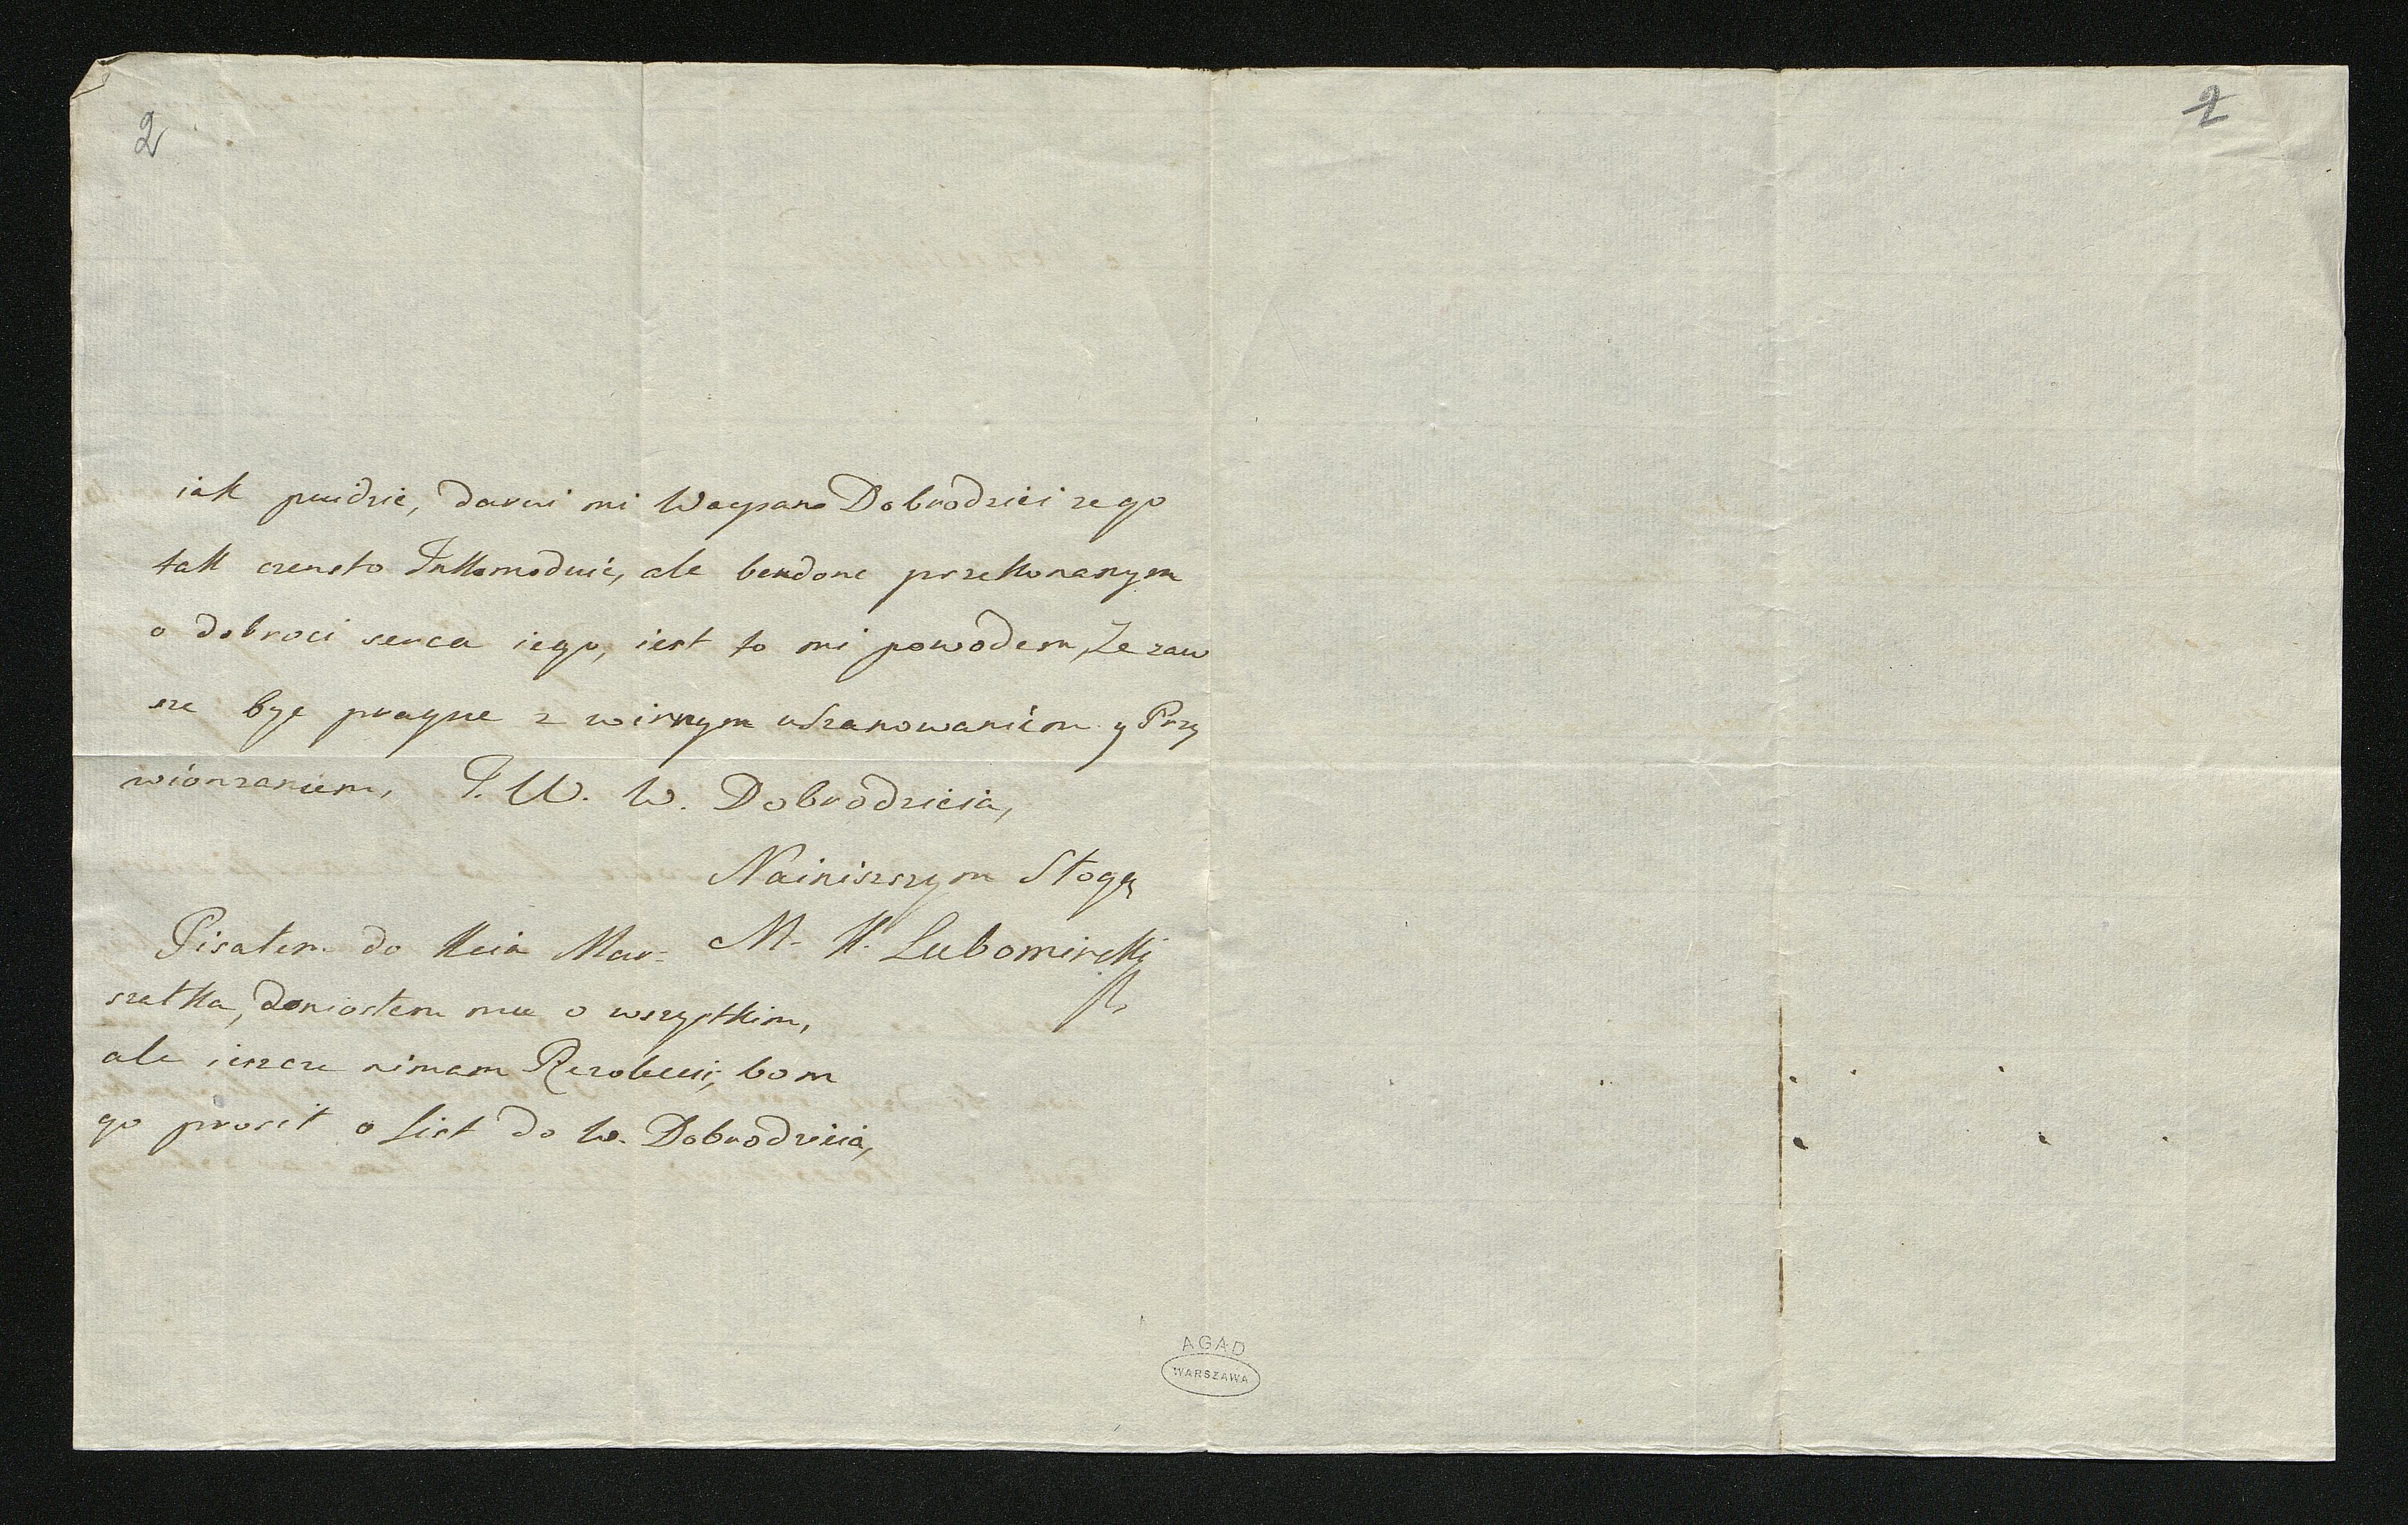 2
2
iak puidzie, darui mi Wacpan Dobrodziei ze go
tak czensto Inkomoduię, ale bendonc przekonanym
o dobroci serca iego, iest to mi powodem, Ze zaw
sze byc pragne z wirnym uszanowaniem y Przy
wionzaniem, J. W. W. Dobrodzieia,
Nainiszszym Slogą
M. X. Lubomirski
Pisałem do Xcia Mar=
szałka, doniosłem mu o wszystkim,
ale ieszcze nimam Rezolucii, bom
go prosił o List do W. Dobrodzieia,
AGAD
WARSZAWA